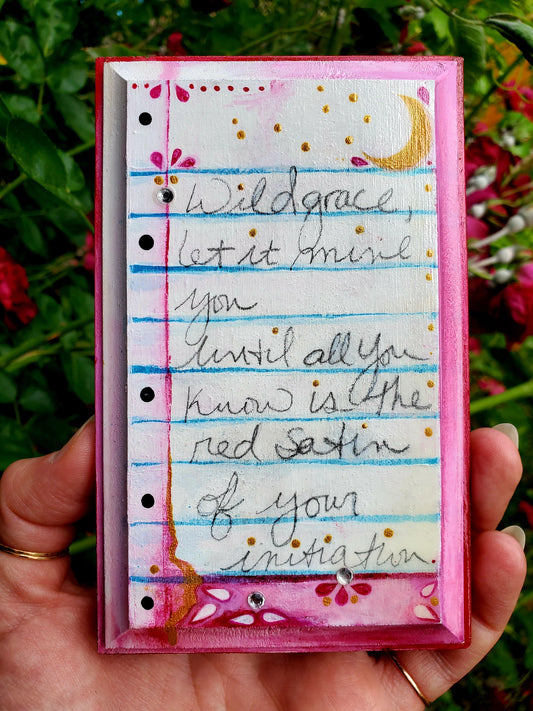 Wildgrace,
let it mine
you
until all you
know is the
red satin
of your
initiation.